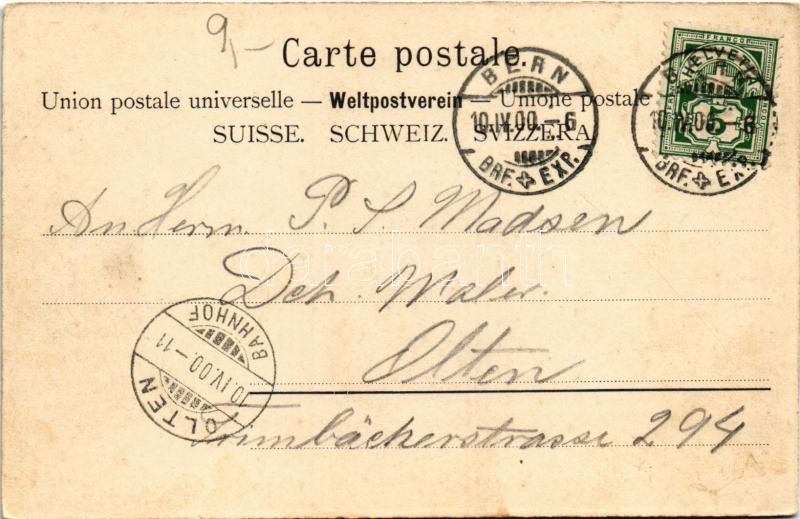 9,-
Carte postale.
Union postale universelle — Weltpostverein — Unione postale
SUISSE. SCHWEIZ. SVIZZERA.
BERN
10.IV.00.-6
BRF. EXP.
FRANCO
HELVETIA
5
10.IV.00.-6
BRF. EXP.
An Herrn P. S. Madsen
Dek. Maler.
Olten
Trimbächerstrasse 294
OLTEN
10.IV.00.-11
BAHNHOF
darabanth